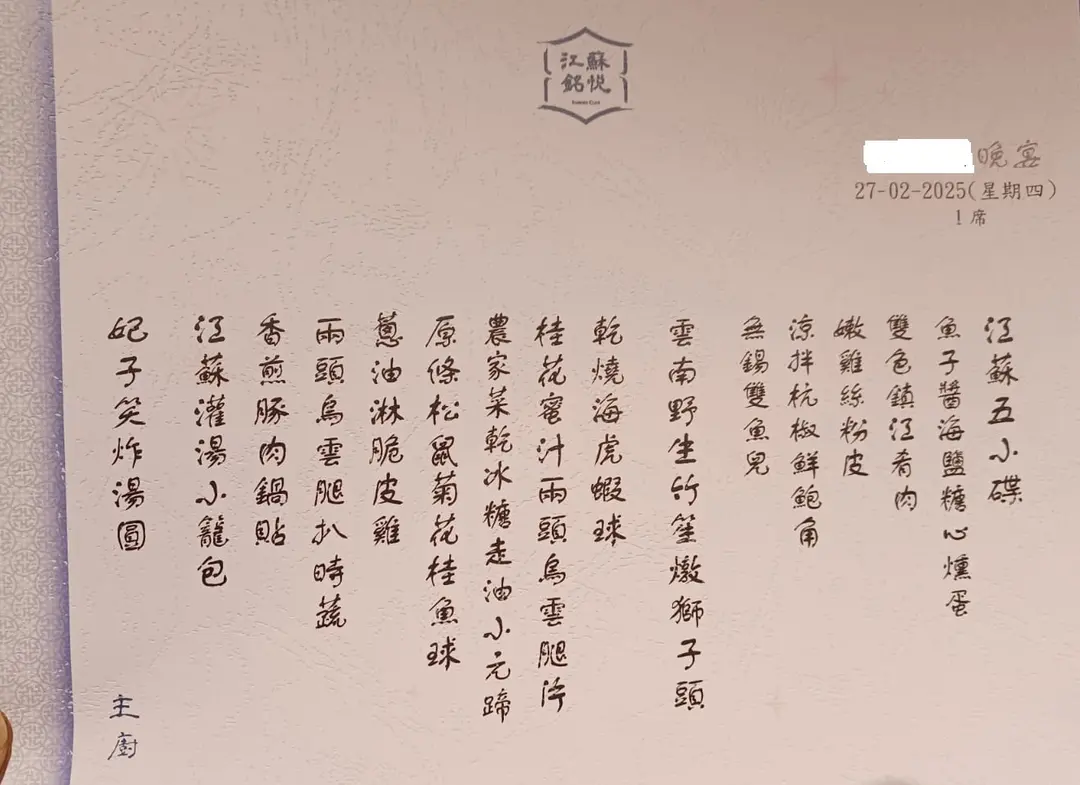 江蘇
銘悦
晚宴
27-02-2025(星期四)
1席
江蘇五小碟
魚子醬海鹽糖心燻蛋
雙色鎮江肴肉
嫩雞絲粉皮
涼拌杭椒鮮鮑角
無錫雙魚兒
雲南野生竹笙燉獅子頭
乾燒海虎蝦球
桂花蜜汁兩頭烏雲腿片
農家菜乾冰糖走油小元蹄
原條松鼠菊花桂魚球
蔥油淋脆皮雞
兩頭烏雲腿扒時蔬
香煎豚肉鍋貼
江蘇灌湯小籠包
妃子笑炸湯圓
主廚